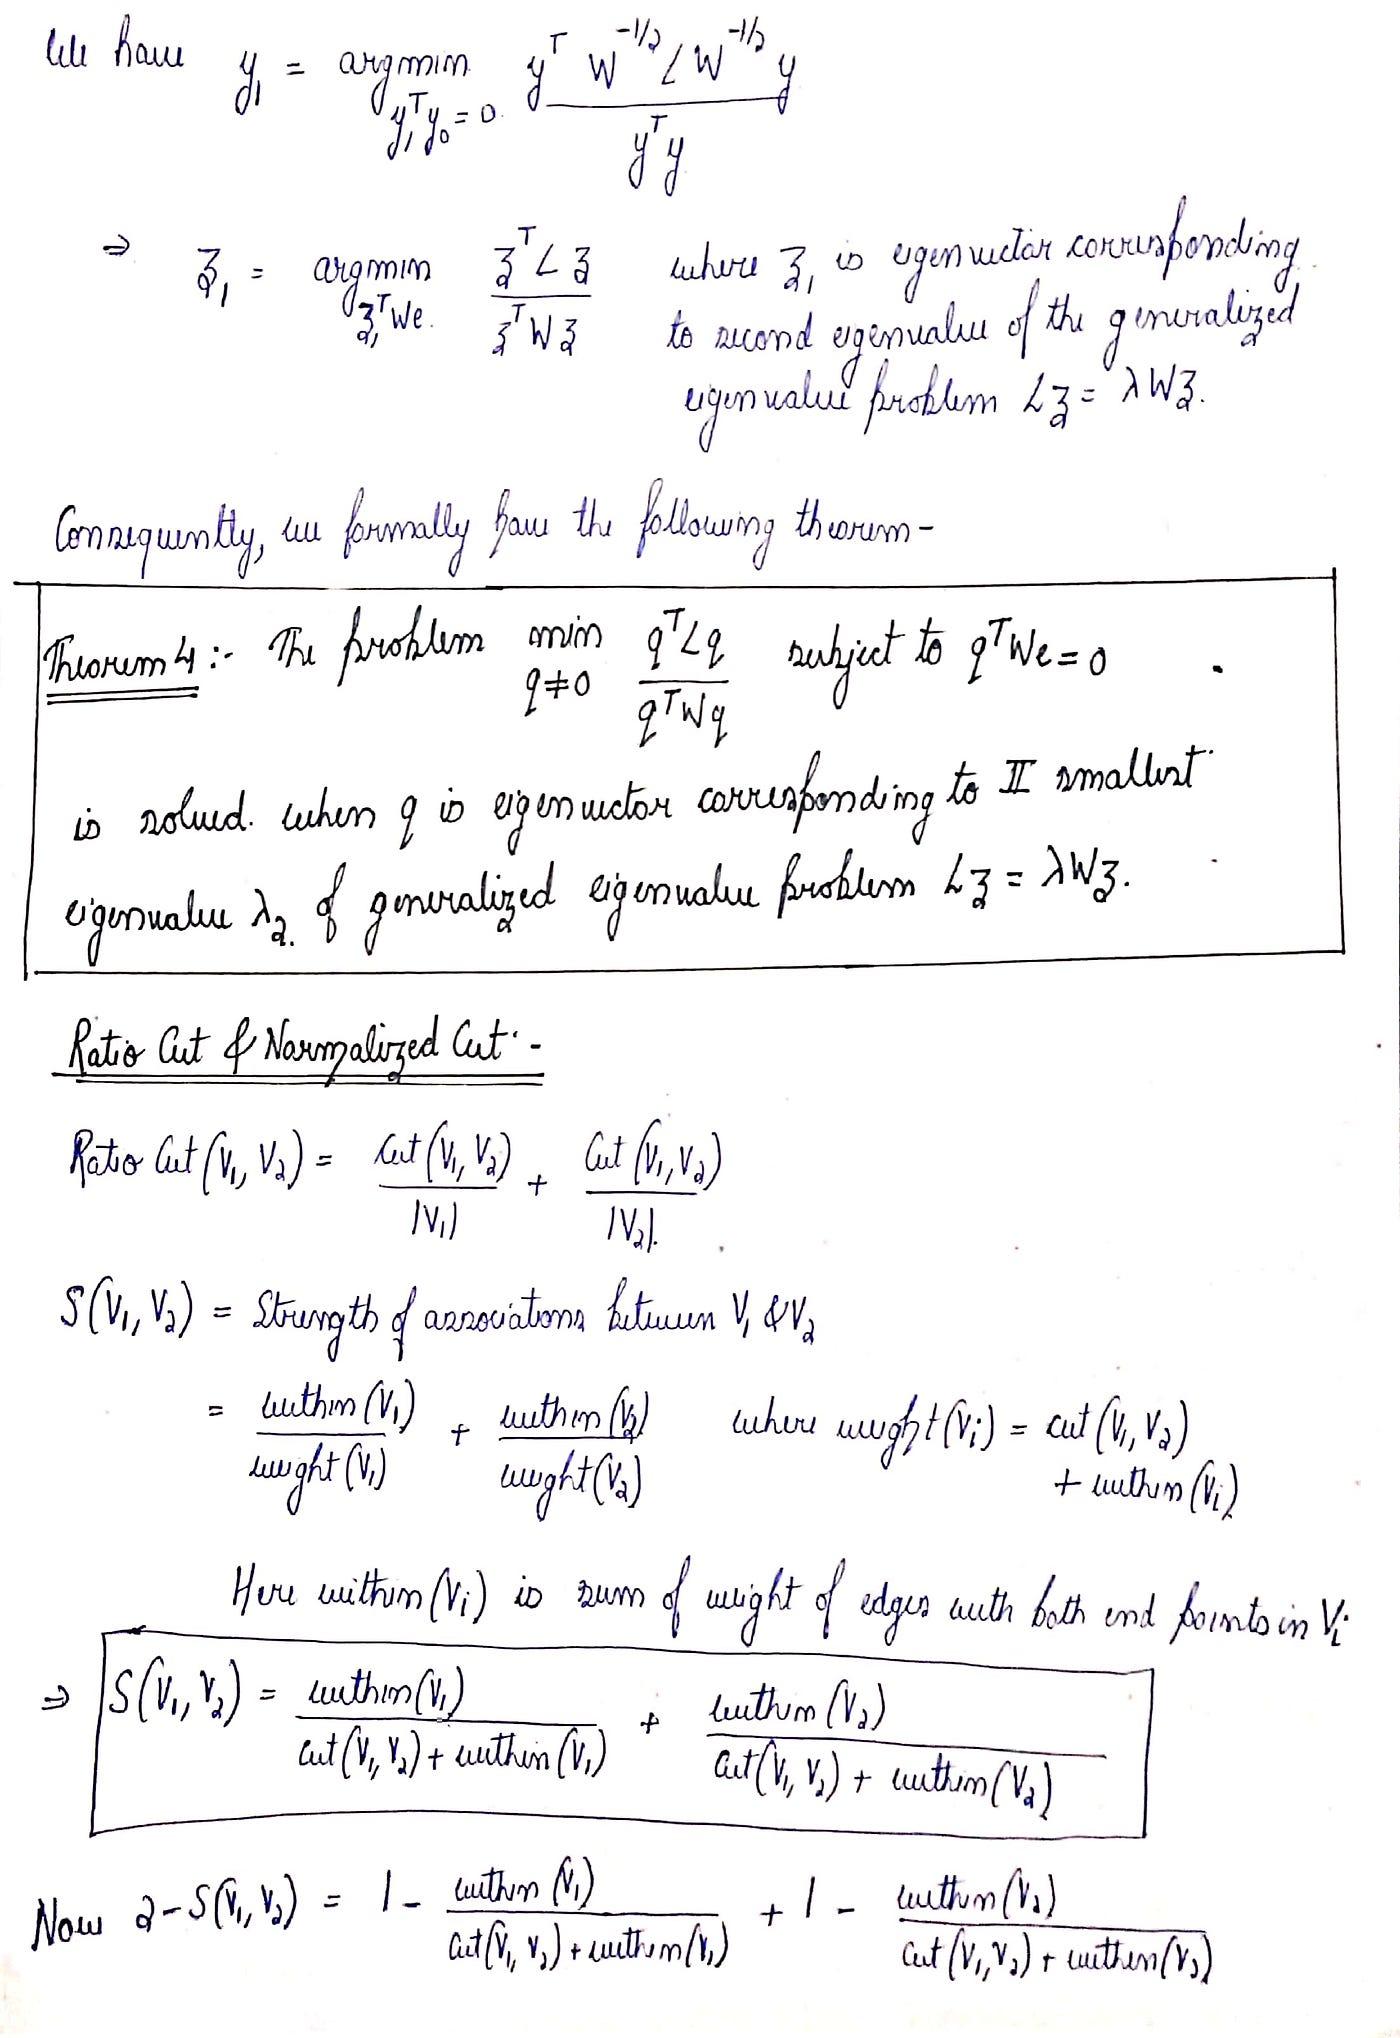 We have y₁ = argmin_{y₁ᵀy₀ = 0.} (yᵀ W^{-1/2} L W^{-1/2} y) / (yᵀy)
⇒ z₁ = argmin_{z₁ᵀWe.} (zᵀLz) / (zᵀWz) where z₁ is eigenvector corresponding
to second eigenvalue of the generalized
eigenvalue problem Lz = λWz.
Consequently, we formally have the following theorem -
Theorem 4 :- The problem min_{q≠0} (qᵀLq) / (qᵀWq) subject to qᵀWe = 0
is solved. when q is eigenvector corresponding to II smallest
eigenvalue λ₂. of generalized eigenvalue problem Lz = λWz.
Ratio Cut & Normalized Cut :-
Ratio Cut (V₁, V₂) = Cut (V₁, V₂) / |V₁| + Cut (V₁, V₂) / |V₂|.
S(V₁, V₂) = Strength of associations between V₁ & V₂
= within (V₁) / weight (V₁) + within (V₂) / weight (V₂) where weight (Vi) = cut (V₁, V₂)
+ within (Vi)
Here within (Vi) is sum of weight of edges with both end points in Vi
⇒ S(V₁, V₂) = within (V₁) / (cut (V₁, V₂) + within (V₁)) + within (V₂) / (cut (V₁, V₂) + within (V₂))
Now 2 - S(V₁, V₂) = 1 - within (V₁) / (cut (V₁, V₂) + within (V₁)) + 1 - within (V₂) / (cut (V₁, V₂) + within (V₂))